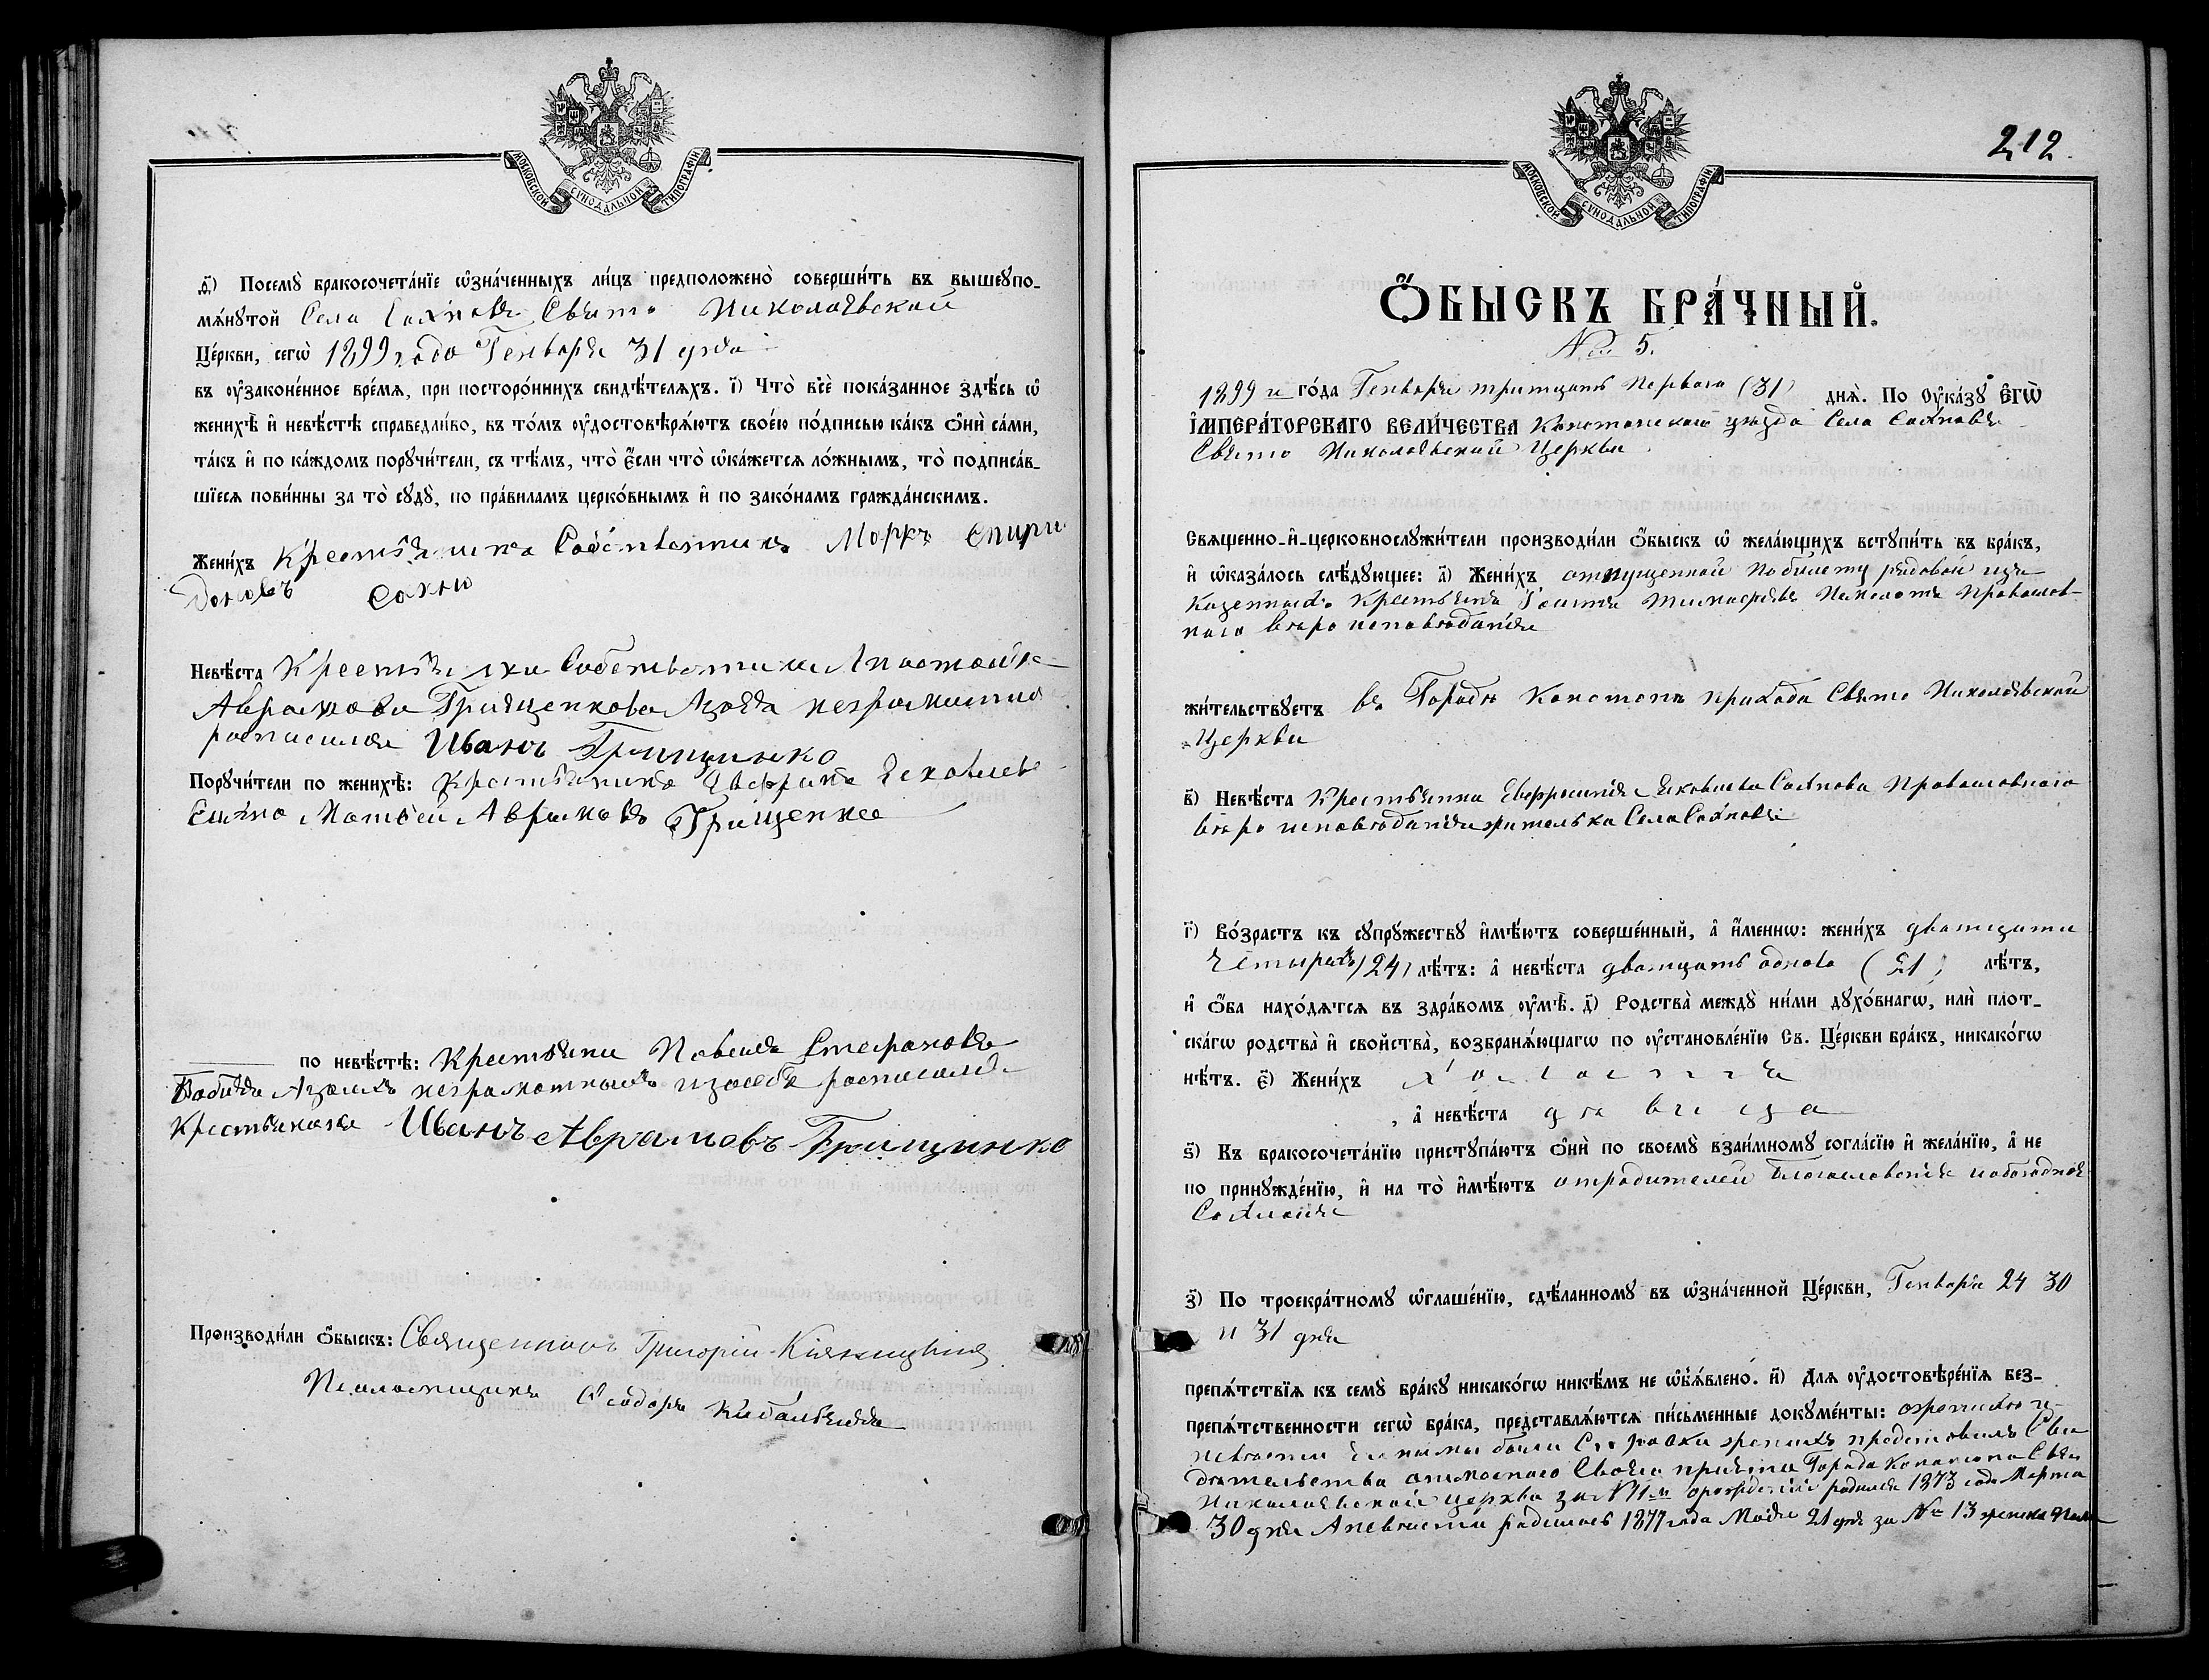 МОСКОВСКОЙ СѴНОДАЛЬНОЙ ТИПОГРАФІИ
ѳ҃) Посемꙋ̀ бракосочета́нїе ѡ҆зна́ченныхъ ли́цъ предположено̀ соверши́ть въ вышеꙋпо-
мѧ́нꙋтой Села Сахновъ Свято Николаевской
Це́ркви, сегѡ̀ 1899 года Генваря 31 дня
въ ᲂу҆законе́нное вре́мѧ, при посторо́ннихъ свидѣ́телѧхъ. і҃) Что̀ всѐ пока́занное здѣ́сь ѡ҆
женихѣ̀ и҆ невѣ́стѣ справедли́во, въ то́мъ ᲂу҆достовѣрѧ́ютъ свое́ю по́дписью ка́къ ѻ҆нѝ са́ми,
та́къ и҆ по ка́ждомъ порꙋчи́тели, съ тѣ́мъ, что̀ є҆́сли что̀ ѡ҆ка́жетсѧ ло́жнымъ, то̀ подписа́в-
шїесѧ пови́нны за то̀ сꙋдꙋ̀, по пра́виламъ церко́внымъ и҆ по зако́намъ гражда́нскимъ.
Жени́хъ Крестьянинъ Собственникъ Маркъ Спири
доновъ Сахно
Невѣ́ста Крестьянка Собственница Анастасія
Аврамова Грищенкова Азанея неграмотная
росписался Иванъ Грищинко
Порꙋчи́тели по женихѣ̀: Крестьянинъ Яковлевъ
Матвей Аврамовъ Грищенко
по невѣ́стѣ: Крестьяни Павелъ Стефановъ
неграмотныхъ росписался
Крестьянинъ Иванъ Аврамовъ Грищинко
Произво́дили ѻ҆́быскъ: Священникъ Григорій
Псаломщикъ Ѳеодоръ
212
МОСКОВСКОЙ СѴНОДАЛЬНОЙ ТИПОГРАФІИ
Ѻ҆́БЫСКЪ БРА́ЧНЫЙ.
№ 5.
1899 го́да Генваря тритцать перваго (31) днѧ̀. По Оу҆ка́зꙋ Є҆гѡ̀
І҆мпера́торскагѡ Вели́чества Конотопскаго уезда Села Сахновъ
Свято Николаевской Церкви
Свѧщенно-и҆-церковнослꙋжи́тели производи́ли ѻ҆́быскъ ѡ҆ жела́ющихъ встꙋпи́ть въ бра́къ,
и҆ ѡ҆каза́лось слѣ́дꙋющее: а҃) Жени́хъ отпущенной по билету рядовой изъ
Казенныхъ Крестьянъ Тимофеевъ православ-
наго вероисповеданія
жи́тельствꙋетъ въ Городе Конотопе прихода Свято Николаевской
Церкви
в҃) Невѣ́ста Крестьянка Евфросинія Яковлева Сахнова Православнаго
вероисповеданія жителька Села Сахновъ
г҃) Во́зрастъ къ сꙋпрꙋ́жествꙋ и҆мѣ́ютъ соверше́нный, а҆ и҆́меннѡ: жени́хъ дватцати
четырехъ (24) лѣ́тъ: а҆ невѣ́ста дватцать одного (21) лѣ́тъ,
и҆ ѻ҆́ба нахо́дѧтсѧ въ здра́вомъ ᲂу҆мѣ̀. д҃) Родства̀ междꙋ̀ ни́ми дꙋхо́внагѡ, илѝ плот-
ска́гѡ родства̀ и҆ свойства̀, возбранѧ́ющагѡ по ᲂу҆становле́нїю Св. Це́ркви бра́къ, никако́гѡ
нѣ́тъ. є҃) Жени́хъ холостъ
, а҆ невѣ́ста девица
ѕ҃) Къ бракосочета́нїю пристꙋпа́ютъ ѻ҆нѝ по своемꙋ̀ взаи́мномꙋ согла́сїю и҆ жела́нїю, а҆ не
по принꙋжде́нїю, и҆ на то̀ и҆мѣ́ютъ отродителей благословеніе
з҃) По троекра́тномꙋ ѡ҆глаше́нїю, сдѣ́ланномꙋ въ ѡ҆зна́ченной Це́ркви, Генваря 24 30
и 31 дня
препѧ́тствїѧ къ семꙋ̀ бра́кꙋ никако́гѡ нике́мъ не ѡ҆бъѧ́влено̀. и҃) Длѧ ᲂу҆достовѣре́нїѧ без-
препѧ́тственности сегѡ̀ бра́ка, представлѧ́ютсѧ пи́сьменные докꙋме́нты: ожениху и
невести были женихъ предъставилъ Сви
детельства отместнаго Своего причта Города Конотопа Свято
Николаевской церкви за № 11м родился 1873 года Марта
30 дня Аневеста родилась 1877 года Маія 21 дня за № 13